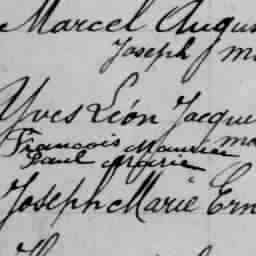 Marcel Augus
Joseph m
Yves Léon Jacque
François Maurice
Paul Marie
Joseph Marie Ern